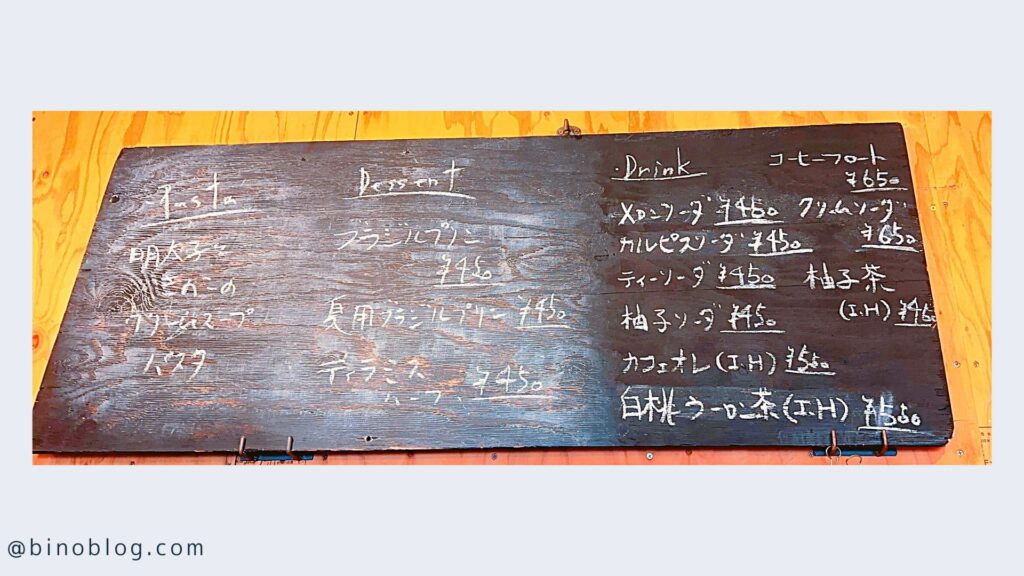 Pasta
明太子と
きのこの
クリームスープ
パスタ
Dessert
ブラジルプリン
¥450
夏用ブラジルプリン ¥450
ティラミス
ハーフ ¥450
Drink
メロンソーダ ¥450
カルピスソーダ ¥450
ティーソーダ ¥450
柚子ソーダ ¥450
カフェオレ (I.H) ¥500
白桃ウーロン茶 (I.H) ¥550
コーヒーフロート
¥650
クリームソーダ
¥650
柚子茶
(I.H)
@binoblog.com